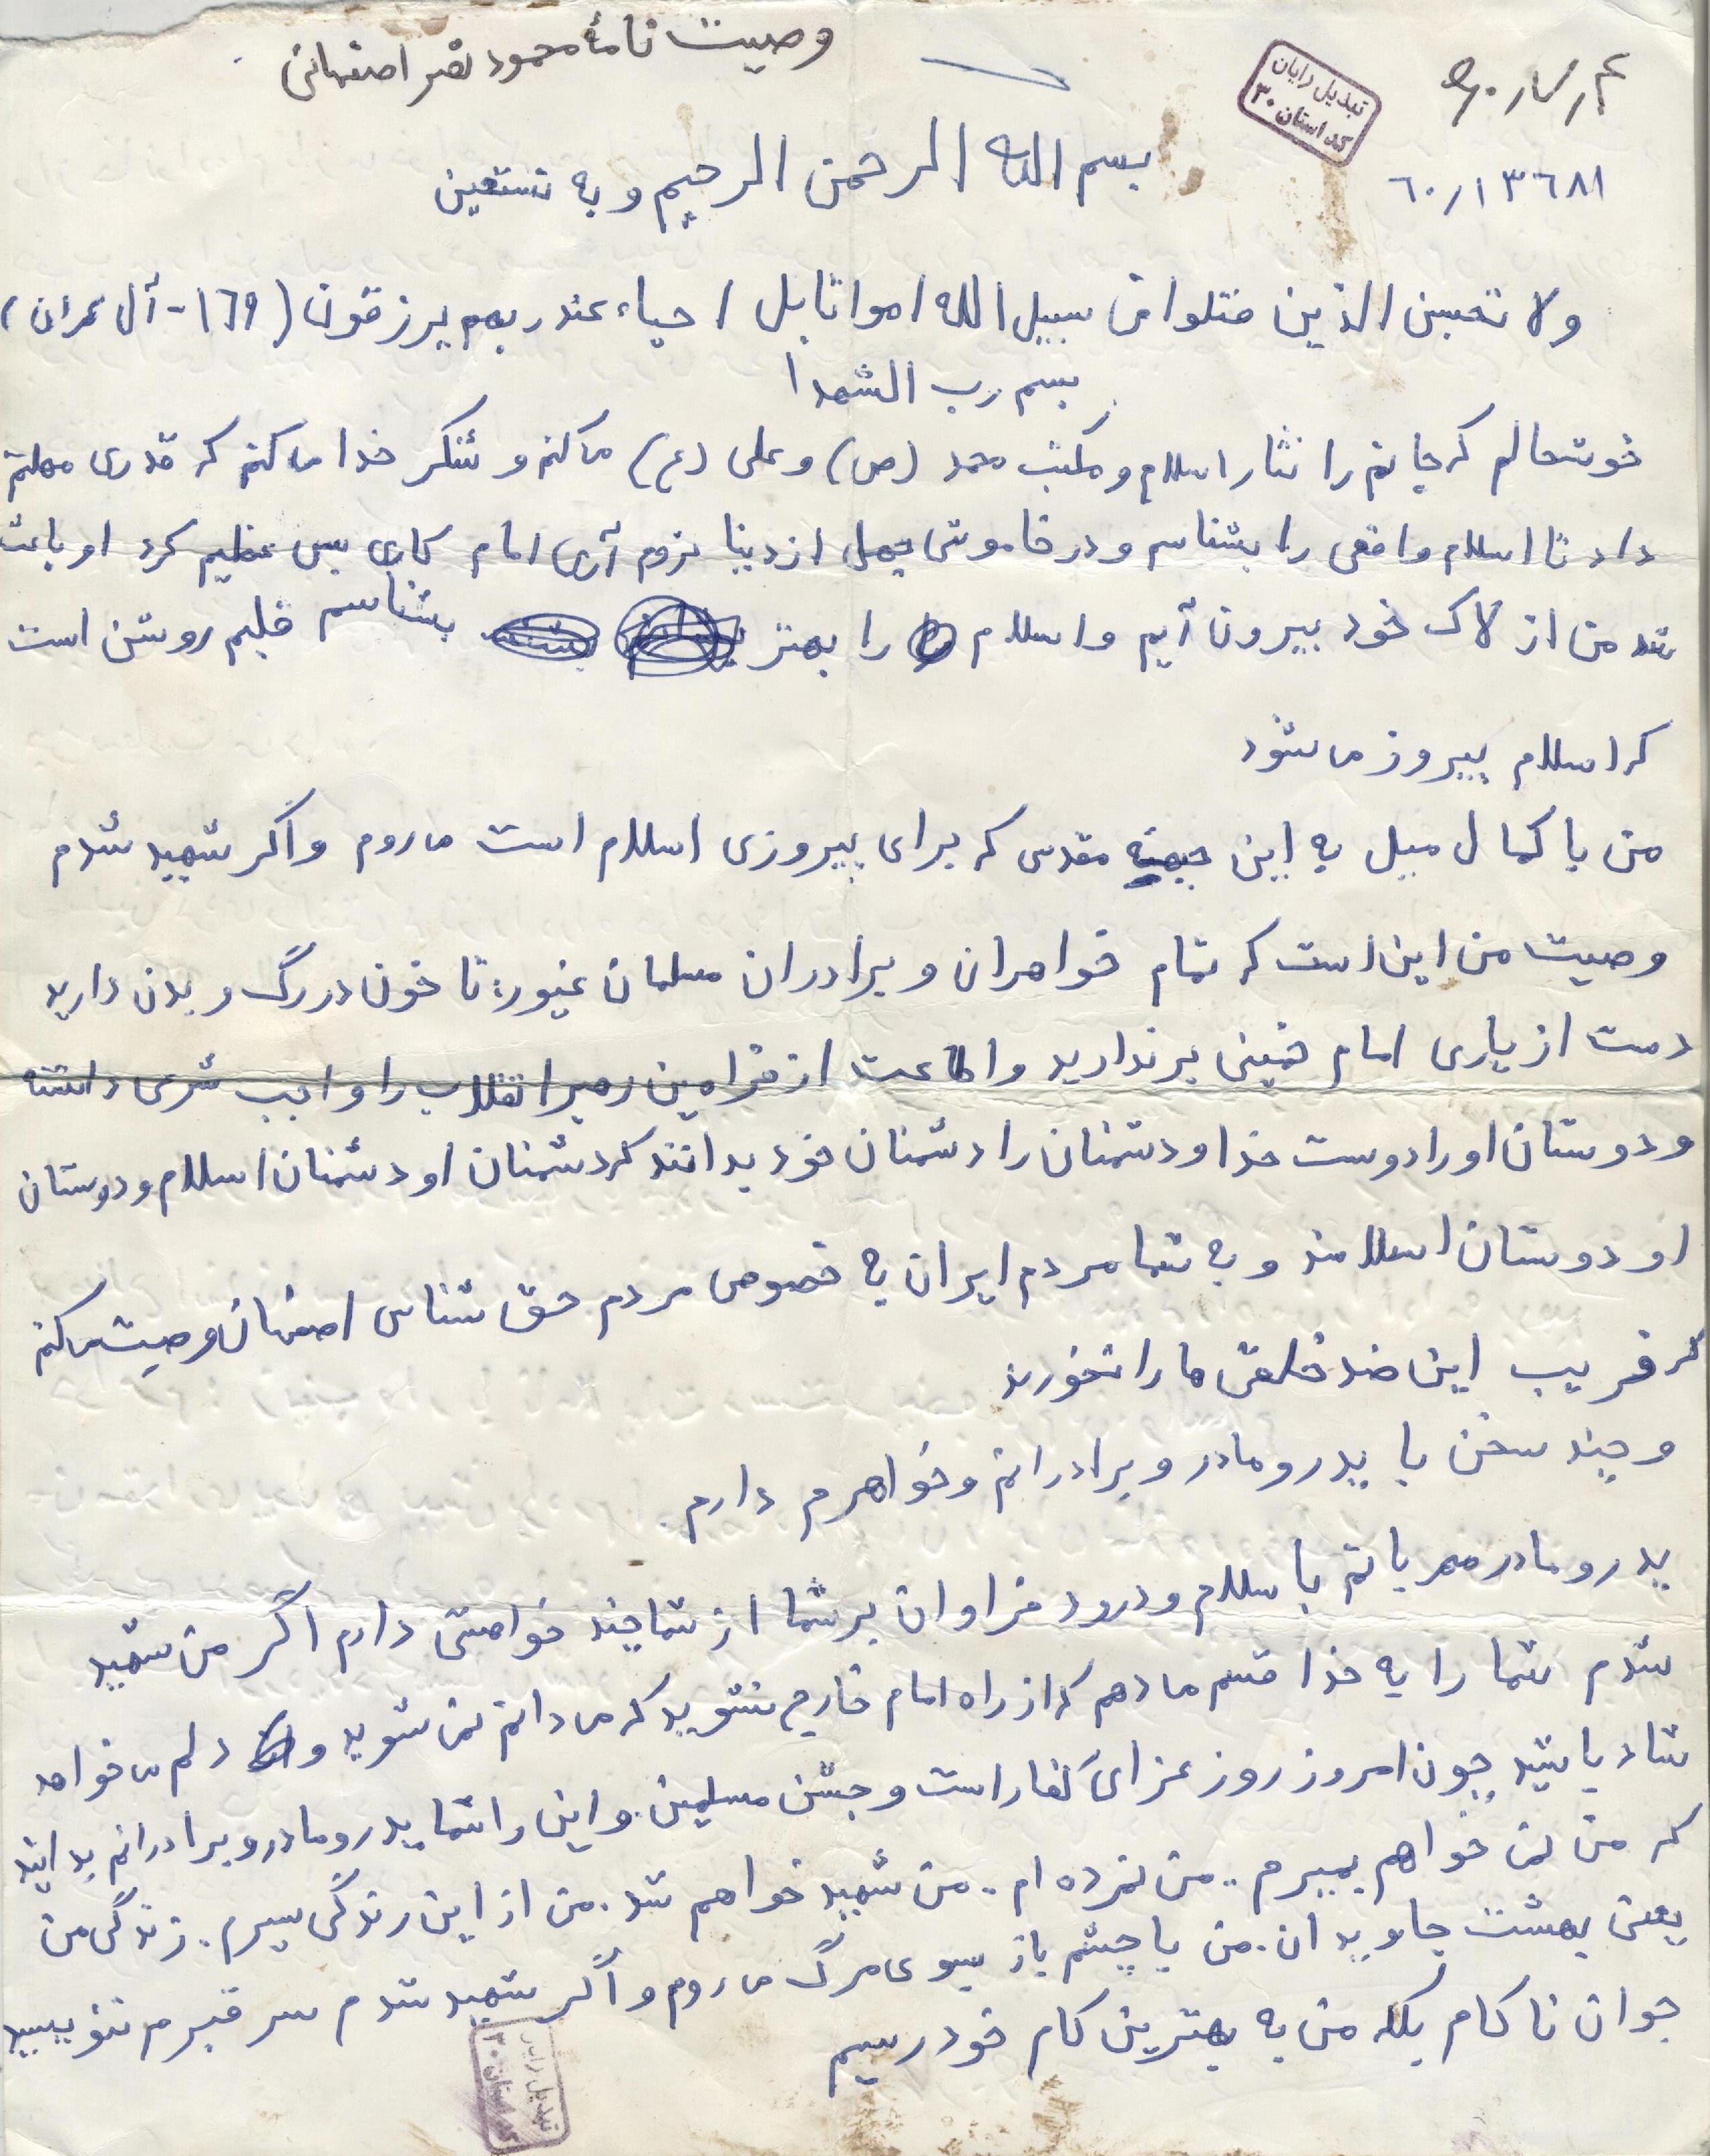 وصیت نامۀ محمود نصر اصفهانی
تبدیل رایان
کد استان ۳۰
۶۰/۱۳۶۸۱
بسم الله الرحمن الرحیم و به نستعین
ولا تحسبن الذین قتلوا فی سبیل الله امواتا بل احیاء عند ربهم یرزقون (۱۶۹- آل عمران)
بسم رب الشهدا
خوشحالم که جانم را نثار اسلام و مکتب محمد (ص) و علی (ع) می کنم و شکر خدا می کنم که قدری مهلتم
داد تا اسلام واقعی را بشناسم و در خاموشی جهل از دنیا نروم آری امام کاری بس عظیم کرد او باعث
شد من از لاک خود بیرون آیم و اسلام را بهتر بشناسم قلبم روشن است
که اسلام پیروز می شود
من با کمال میل به این جبهه مقدس که برای پیروزی اسلام است می روم و اگر شهید شدم
وصیت من این است که تمام خواهران و برادران مسلمان غیور: تا خون در رگ و بدن دارید
دست از یاری امام خمینی برندارید و اطاعت از فرامین رهبر انقلاب را واجب شرعی دانسته
و دوستان او را دوست خدا و دشمنان را دشمنان خود بدانند که دشمنان او دشمنان اسلام و دوستان
او دوستان اسلامند و به شما مردم ایران به خصوص مردم حق شناس اصفهان وصیت می کنم
که فریب این ضد خلقی ها را نخورند
و چند سخن با پدر و مادر و برادرانم و خواهرم دارم.
پدر و مادر مهربانم با سلام و درود فراوان بر شما از شما چند خواهشی دارم اگر من شهید
شدم شما را به خدا قسم می دهم که از راه امام خارج نشوید که می دانم نمی شوید و دلم می خواهد
شاد باشید چون امروز روز عزای کفار است و جشن مسلمین. و این را شما پدر و مادر و برادرانم بدانید
که من نمی خواهم بمیرم .. من نمرده ام .. من شهید خواهم شد. من از این زندگی سیرم. زندگی من
یعنی بهشت جاویدان. من با چشم باز بسوی مرگ می روم و اگر شهید شدم سر قبرم ننویسید
جوان ناکام بلکه من به بهترین کام خود رسیم
تبدیل رایان
کد استان ۳۰